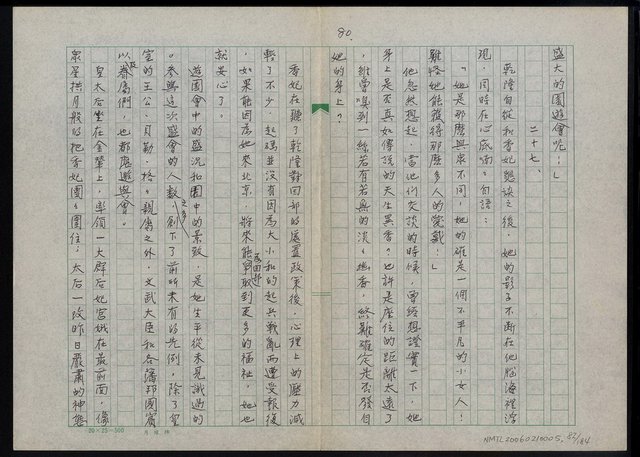 80.
盛大的園遊會呢!」
二十七、
乾隆自從和香妃懇談之後,她的影子不斷在他腦海裡浮
現,同時在心底喃喃自語:
「她是那麼與眾不同,她的確是一個不平凡的小女人!
難怪她能獲得那麼多人的愛戴!」
他忽然想起,當他們交談的時候,曾經想證實一下,她
身上是否真如傳說的天生異香?也許是座位的距離太遠了
,雖曾嗅到一絲若有若無的淡淡幽香,終難確定是否發自
她的身上?
香妃在聽了乾隆對回部的處置政策後,心理上的壓力減
輕了不少,起碼並沒有因為大小和的起兵戰亂而遭受報復
,如果能因為她來北京,將來能為回部爭取到更多的福祉,她也
就安心了。
遊園會中的盛況和園中的景致,是她生平從未見識過的
。參與這次盛會的人數之多,創下了前所未有的先例,除了皇
室的王公、貝勒、格格、親屬之外,文武大臣和各藩邦國賓
以及眷屬們,也都應邀與會。
皇太后坐在金輦上,率領一大群后妃宮娥在最前面,像
眾星拱月般的把香妃團團圍住;太后一改昨日嚴肅的神態
20×25=500
NMTL20060210005, 82/184